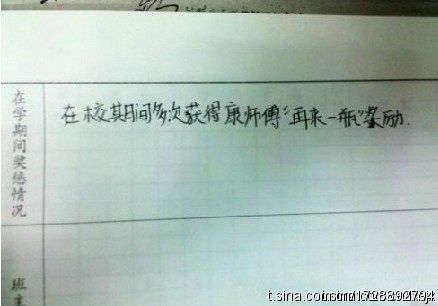 在学期间奖惩情况
在校其期间多次获得康师傅“再来一瓶”奖励.
班主